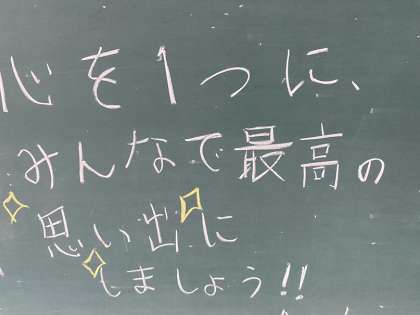 心を1つに、
みんなで最高の
思い出に
しましょう!!